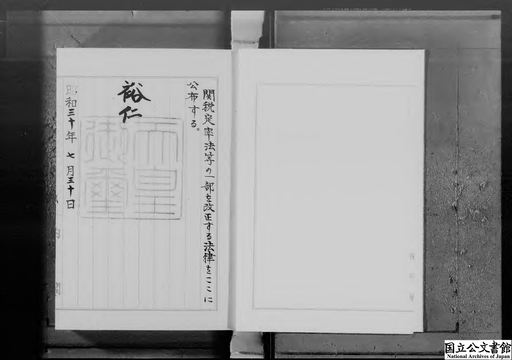 関税定率法等の一部を改正する法律をここに
公布する。
裕仁
天皇
御璽
昭和三十年七月三十日
国立公文書館
National Archives of Japan